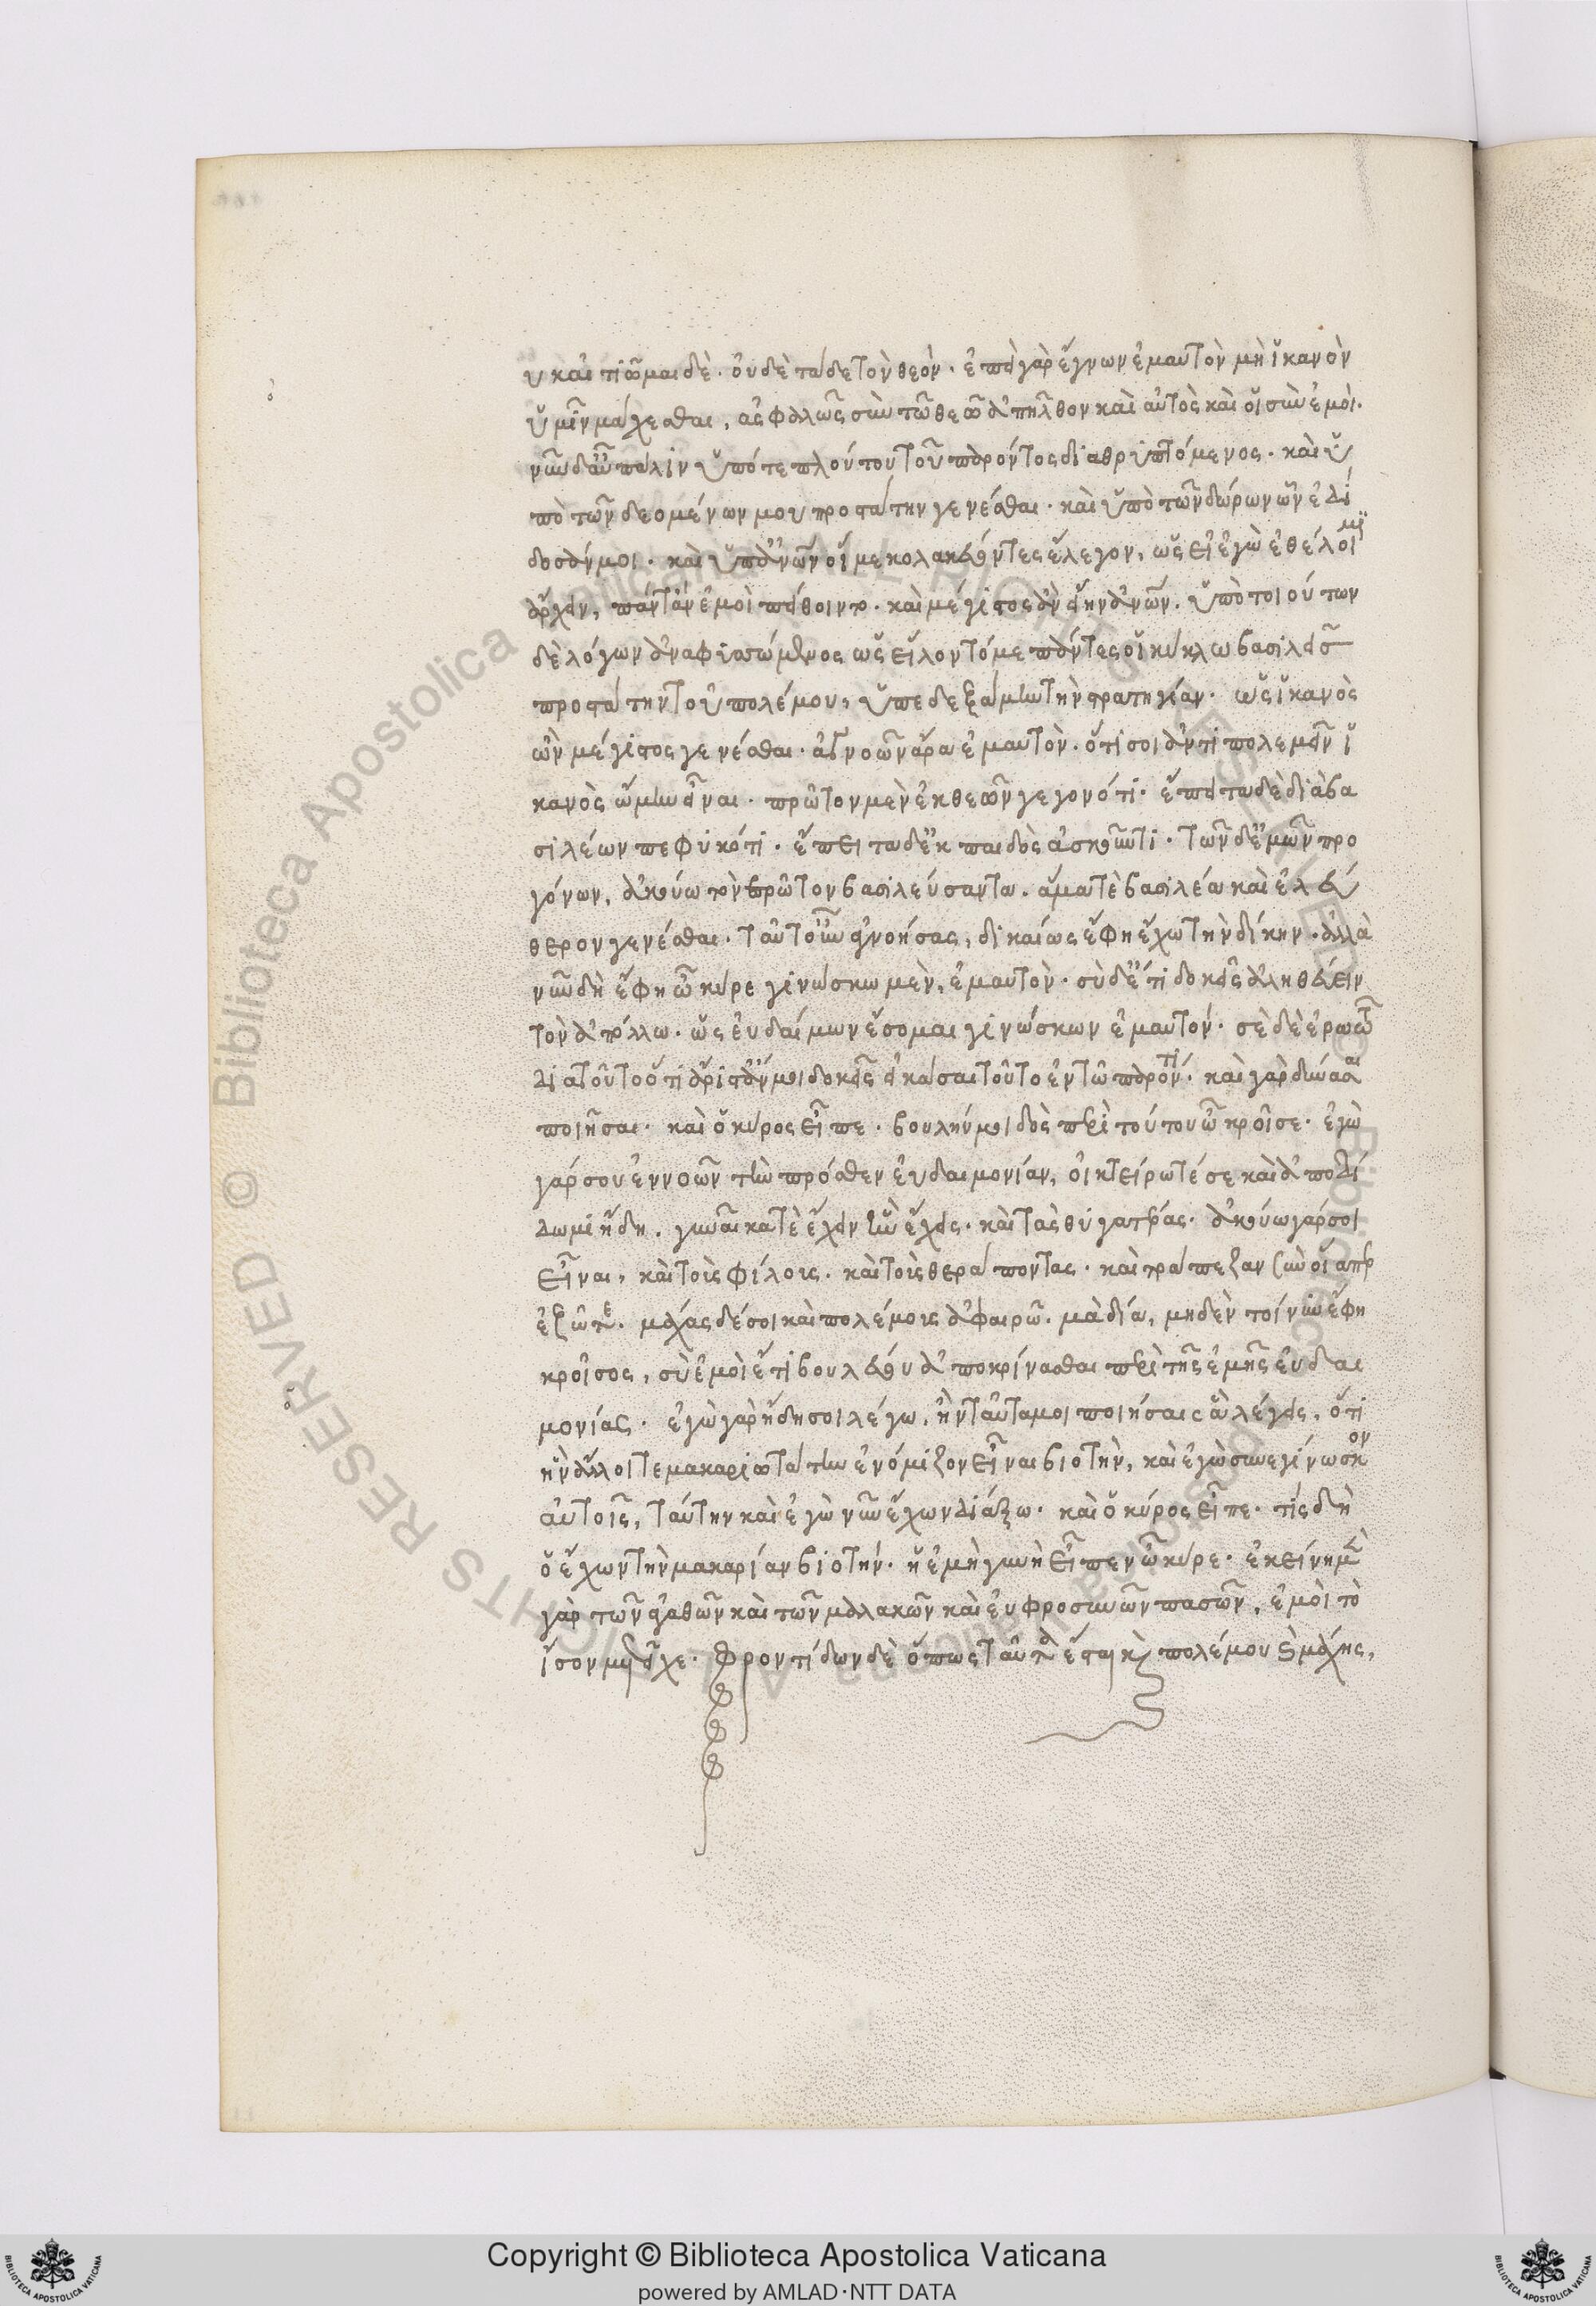 υκ αἰτιῶμαι δὲ. οὐδὲ τάδε τὸν θεόν. ἐπεὶ γὰρ ἔγνων ἐμαυτὸν μὴ ἱκανὸν
ὑμῖν μάχεσθαι, ἀσφαλῶς σὺν τῶ θεῶ ἀπῆλθον καὶ αὐτὸς καὶ οἱ σὺν ἐμοί.
νῦν δ' αὖ πάλιν ὑπό τε πλούτου τοῦ παρόντος διαθρυπτόμενος. καὶ ὑ
πὸ τῶν δεομένων μου προστάτην γενέσθαι. καὶ ὑπὸ τῶν δώρων ὧν ἐδί
δοσάν μοι. καὶ ὑπ' ἀνῶν οἵ με κολακεύοντες ἔλεγον, ὡς εἰ ἐγὼ ἐθέλοιμι
ἄρχειν, πάντ' ἂν ἐμοὶ πείθοιντο. καὶ μέγιστος ἂν εἴην ἀνῶν. ὑπὸ τοιούτων
δὲ λόγων ἀναφυσώμενος ὡς εἵλοντό με πάντες οἱ κύκλω βασιλεῖς
προστάτην τοῦ πολέμου, ὑπεδεξάμην τὴν στρατηγίαν. ὡς ἱκανὸς
ὢν μέγιστος γενέσθαι. ἀγνοῶν ἄρα ἐμαυτὸν. ὅτι σοι ἀντιπολεμεῖν ἱ
κανὸς ὤμην εἶναι. πρῶτον μὲν ἐκ θεῶν γεγονότι. ἔπειτα δὲ διὰ βα
σιλέων πεφυκότι. ἔπειτα δ' ἐκ παιδὸς ἀσκοῦντι. τῶν δ' ἐμῶν προ
γόνων, ἀκούω τὸν πρῶτον βασιλεύσαντα. ἅμα τὲ βασιλέα καὶ ἐλεύ
θερον γενέσθαι. ταῦτ' οὖν ἀγνοήσας, δικαίως ἔφη ἔχω τὴν δίκην. ἀλλὰ
νῦν δὴ ἔφη ὦ κῦρε γινώσκω μὲν, ἐμαυτὸν. σὺ δ' ἔτι δοκεῖς ἀληθεύειν
τὸν ἀπόλλω. ὡς εὐδαίμων ἔσομαι γινώσκων ἐμαυτόν. σὲ δὲ ἐρωτῶ
διατοῦτο ὅτι ἄριστ' ἄν μοι δοκεῖς εἰκάσαι τοῦτο ἐν τῶ παρόντι. καὶ γὰρ δύνασαι
ποιῆσαι. καὶ ὁ κῦρος εἶπε. βουλήν μοι δὸς περὶ τούτου ὦ κροῖσε. ἐγὼ
γάρ σου ἐννοῶν τὴν πρόσθεν εὐδαιμονίαν, οἰκτείρω τέ σε καὶ ἀποδί
δωμι ἤδη. γυναῖκα τὲ ἔχειν ἣν εἶχες. καὶ τὰς θυγατέρας. ἀκούω γάρ σοι
εἶναι, καὶ τοὺς φίλους. καὶ τοὺς θεράποντας. καὶ τράπεζαν σὺν οἵαπερ
ἐζῶτε. μάχας δέ σοι καὶ πολέμους ἀφαιρῶ. μὰ δία, μηδὲν τοίνυν ἔφη
κροῖσος, σὺ ἐμοὶ ἔτι βουλεύου ἀποκρίνασθαι περὶ τῆς ἐμῆς εὐδαι
μονίας. ἐγὼ γὰρ ἤδη σοι λέγω, ἢν ταῦτά μοι ποιήσαις ἃ λέγεις, ὅτι
ἣν ἄλλοι τε μακαριωτάτην ἐνόμιζον εἶναι βιοτὴν, καὶ ἐγὼ συνεγίνωσκον
αὐτοῖς, ταύτην καὶ ἐγὼ νῦν ἔχων διάξω. καὶ ὁ κύρος εἶπε. τίς δὴ
ὁ ἔχων τὴν μακαρίαν βιοτήν. ἡ ἐμὴ γυνὴ εἶπεν ὦ κῦρε. ἐκείνη μὲν
γὰρ τῶν ἀγαθῶν καὶ τῶν μαλακῶν καὶ εὐφροσυνῶν πασῶν, ἐμοὶ τὸ
ἴσον μετεῖχε. φροντίδων δὲ ὅπως ταῦτα ἔσται καὶ πολέμου καὶ μάχης,